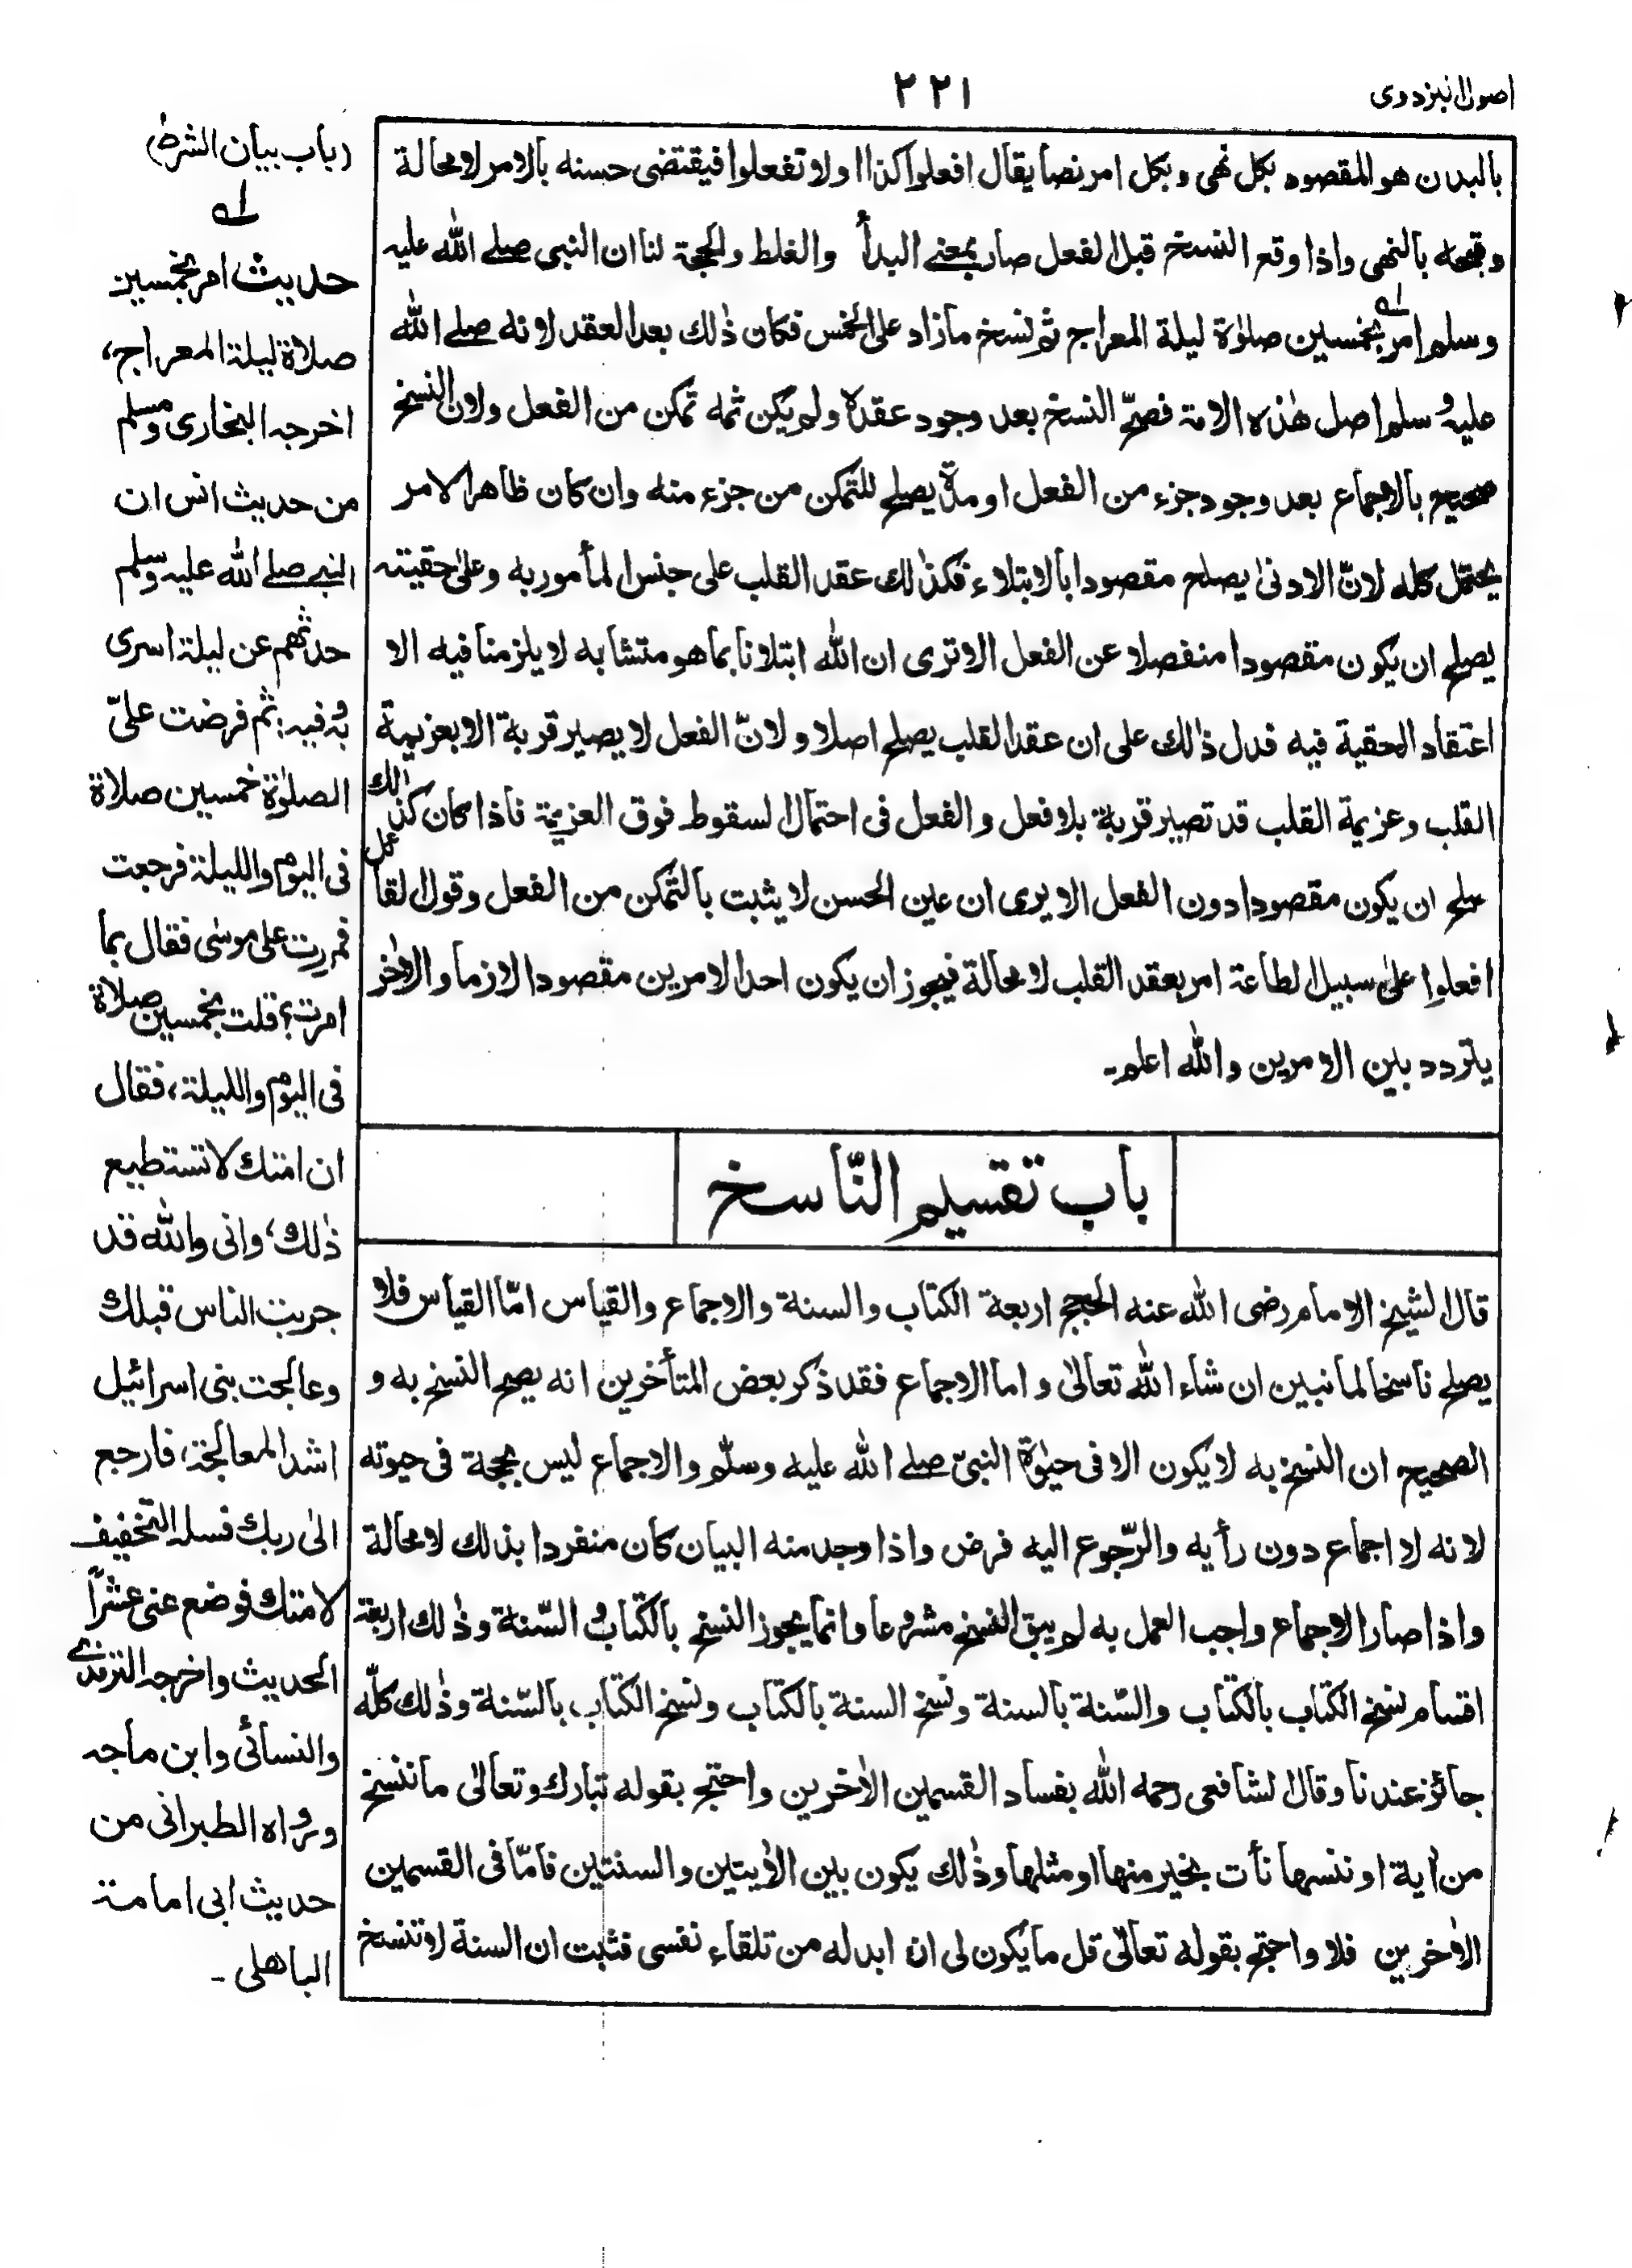 اصول البزدوى
٢٢١
بالبدن هو المقصود بكل نهى وبكل امر نصا يقال افعلوا كذا ولا تفعلوا فيقتضى حسنه بالامر لا محالة
وقبحه بالنهى واذا وقع النسخ قبل الفعل صار بمعنى البدأ والغلط والحجة لنا ان النبى صلى الله عليه
وسلم امر بخمسين صلوٰة ليلة المعراج ثم نسخ ما زاد على الخمس فكان ذٰلك بعد العقد لانه صلى الله
عليه وسلم اصل هٰذه الامة فصحّ النسخ بعد وجود عقده ولم يكن ثمه تمكن من الفعل ولان النسخ
صحيح بالاجماع بعد وجود جزء من الفعل او مدّة يصلح للتمكن من جزء منه وان كان ظاهر الامر
يحتمل كله لانّ الادنىٰ يصلح مقصودا بالابتلاء فكذٰلك عقد القلب على جنس المأمور به وعلىٰ حقيته
يصلح ان يكون مقصودا منفصلا عن الفعل الا ترى ان الله ابتلانا بما هو متشابه لا يلزمنا فيه الا
اعتقاد الحقية فيه فدل ذٰلك على ان عقد القلب يصلح اصلا ولانّ الفعل لا يصير قربة الا بعزيمة
القلب وعزيمة القلب قد تصير قربة بلا فعل والفعل فى احتمال السقوط فوق العزيمة فاذا كان كذالك
صلح ان يكون مقصودا دون الفعل الا يرى ان عين الحسن لا يثبت بالتمكن من الفعل وقول القائل
افعلوا علىٰ سبيل الطاعة امر بعقد القلب لا محالة فيجوز ان يكون احد الامرين مقصودا لازما والاٰخر
يتردد بين الامرين والله اعلم۔
باب تقسيم النّاسخ
قال الشيخ الامام رضى الله عنه الحجج اربعة الكتاب والسنة والاجماع والقياس امّا القياس فلا
يصلح ناسخا لما نبين ان شاء الله تعالىٰ واما الاجماع فقد ذكر بعض المتأخرين انه يصح النسخ به و
الصحيح ان النسخ به لا يكون الا فى حيوٰة النبىّ صلى الله عليه وسلّم والاجماع ليس بحجة فى حيوته
لانه لا اجماع دون رأيه والرّجوع اليه فرض واذا وجد منه البيان كان منفردا بذلك لا محالة
واذا صار الاجماع واجب العمل به لم يبق النسخ مشروعا وانما يجوز النسخ بالكتاب والسّنة وذٰلك اربعة
اقسام نسخ الكتاب بالكتاب والسّنة بالسنة ونسخ السنة بالكتاب ونسخ الكتاب بالسّنة وذٰلك كلّه
جائز عندنا وقال الشافعى رحمه الله بفساد القسمين الاٰخرين واحتج بقوله تبارك وتعالىٰ ما ننسخ
من اٰية او ننسها نأت بخير منها او مثلها وذٰلك يكون بين الاٰيتين والسنتين فامّا فى القسمين
الاٰخرين فلا واحتج بقوله تعالىٰ قل ما يكون لى ان ابدله من تلقاء نفسى فثبت ان السنة لا تنسخ
(باب بيان الشرط)
لہ
حديث امر بخمسين
صلاة ليلة المعراج،
اخرجه البخارى ومسلم
من حديث انس ان
النبى صلى الله عليه وسلم
حدثهم عن ليلة اسرى
به وفيه: ثم فرضت علىّ
الصلوٰة خمسين صلاة
فى اليوم والليلة فرجعت
فمررت على موسٰى فقال بما
امرت؟ قلت بخمسين صلاة
فى اليوم والليلة، فقال
ان امتك لا تستطيع
ذٰلك، وانى والله قد
جربت الناس قبلك
وعالجت بنى اسرائيل
اشد المعالجة، فارجع
الىٰ ربك فسله التخفيف
لامتك فوضع عنى عشراً
الحديث واخرجه الترمذى
والنسائى وابن ماجه
ورواه الطبرانى من
حديث ابى امامة
الباهلى۔